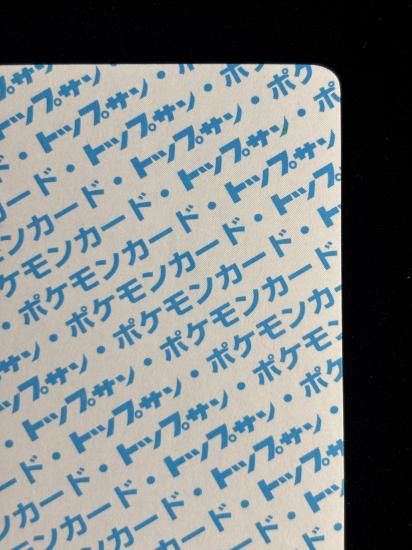 サン
トップサン・
トップサン・ポケ
ド・トップサン・ポケ
ード・トップサン・ポ
カード・トップサン
ンカード・トップサ
モンカード・トップ
ケモンカード・ト
ポケモンカード・
・ポケモンカード
ン・ポケモンカー
サン・ポケモン
トップサン・ポケモ
トップサン・ポケ
・トップサン・
ド・トップサン
カード・トップ
ンカード・ト
モンカード・